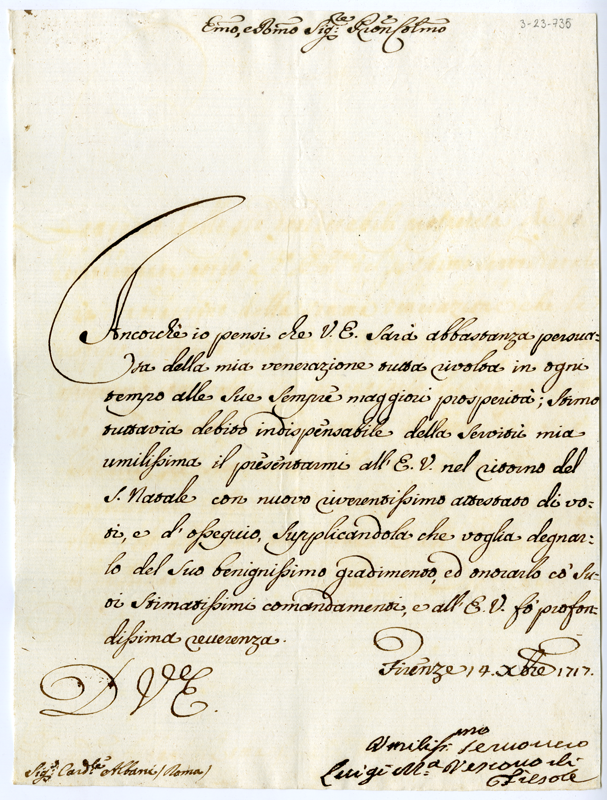 3-23-735
Emo, e Rmo Sig:re Pron Colmo
Ancorchè io pensi che V. E. sarà abbastanza persua-
sa della mia venerazione tutta rivolta in ogni
tempo alle sue sempre maggiori prosperità; stimo
tuttavia debito indispensabile della servitù mia
umilissima il presentarmi all'E. V. nel ritorno del
S. Natale con nuovo riverentissimo attestato di vo-
ti, e d'ossequio, supplicandola che voglia degnar-
lo del suo benignissimo gradimento, ed onorarlo co' su-
oi stimatissimi comandamenti, e all'E. V. fò profon-
dissima reverenza.
Firenze 14. Xbre 1717.
D V. E.
Umiliss:mo Servo vero
Luigi M.a Vescovo di
Fiesole
Sig:r Card:le Albani (Roma)